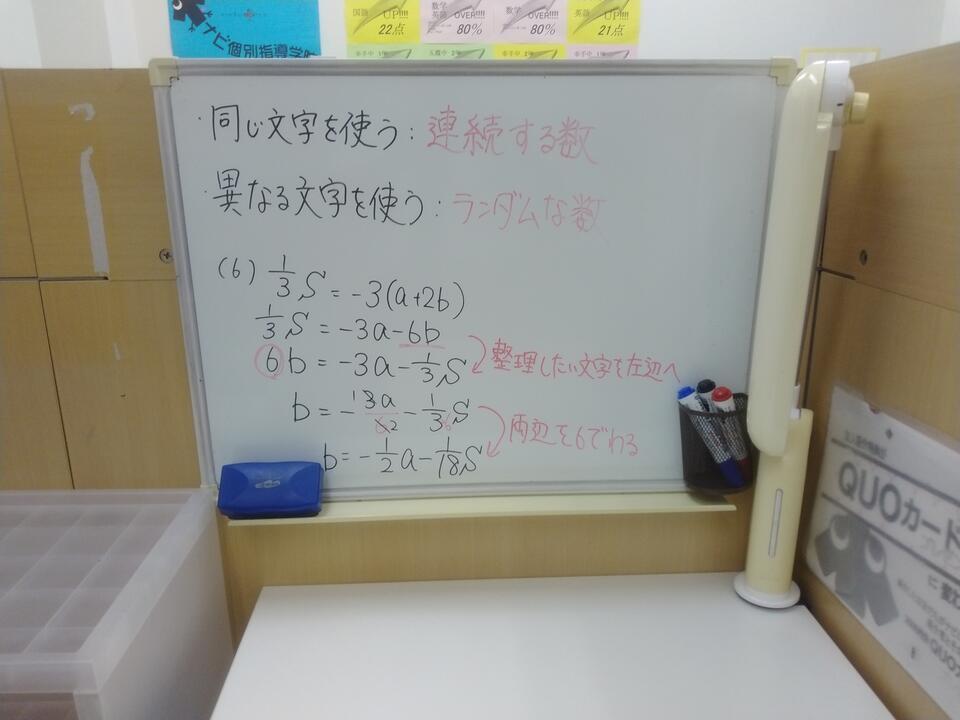 ナビ個別指導学院
国語 UP!!!! 22点
数学 英語 OVER!!!! 80%
数学 OVER!!!! 80%
英語 UP!!!! 21点
・同じ文字を使う：連続する数
・異なる文字を使う：ランダムな数
(6) 1/3 S = -3(a+2b)
1/3 S = -3a-6b
6b = -3a-1/3 S 整理したい文字を左辺へ
b = -3a/6 - 1/3 S 両辺を6でわる
b = -1/2 a - 1/18 S
QUOカード
QUO